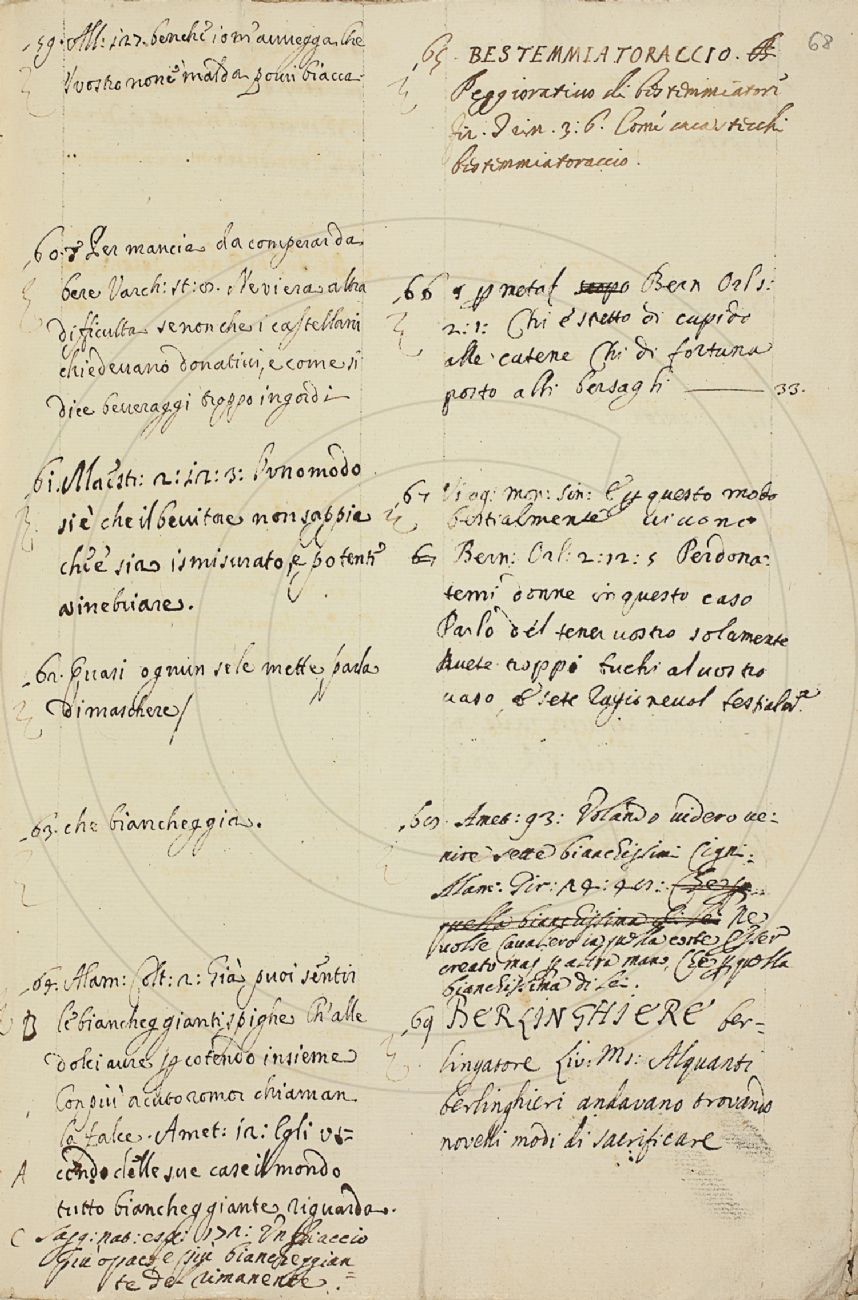 59. All: 127. benche io m'auuegga che
l uostro non è mal da por ui biacca
60. § Per mancia da comperar da
bere Varch: st: 8. Ne vi era altra
difficulta se non che i castellani
chiedeuano donatiui, e come si
dice beueraggi troppo ingordi
61. Maestr: 2: 12: 3: l'uno modo
si è che il beuitore non sappia
ch'e' sia ismisurato, e potente
a inebriare.
62. quasi ognun se le mette, parla
di maschere/
63. che biancheggia.
64. Alam: Colt: 2: Già puoi sentir
B le biancheggianti spighe Ch' alle
dolci aure percotendo insieme
Con più acuto romor chiaman
la falce. Amet: 12: Egli us=
A cendo delle sue case il mondo
tutto biancheggiante riguarda.
C Sagg: nat: esp: 171: Un ghiaccio
più opaco e più biancheggian
te del rimanente.
68
65. BESTEMMIATORACCIO.
Peggioratiuo di bestemmiatore
3: 6. Com'e' cacastecchi
bestemmiatoraccio.
66 § p metaf Bern Orl s:
2: 1: Chi è stretto di cupido
alle catene Chi di fortuna
posto alli bersagli ——— 33.
67 Viag: mon: sin: E p questo modo
bestialmente uiuono
67 Bern: Orl: 2: 12: 5 Perdona:
temi donne in questo caso
Parlo del tener uostro solamente
Auete troppi fuchi al uostro
uaso, e sete ragioneuol bestialmte.
68. Amet: 93: Volando uidero ue=
nire sette bianchissimi Cigni:
Alam: Gir: 24: 41: Che p
quella bianchissima di lei Ne
uolse Caualiero in questa corte Esser
creato mai p altra mano, Che p quella
bianchissima di lei.
69 BERLINGHIERE ber=
lingatore Liv: Ms: Alquanti
berlinghieri andavano trovando
novelli modi di sacrificare